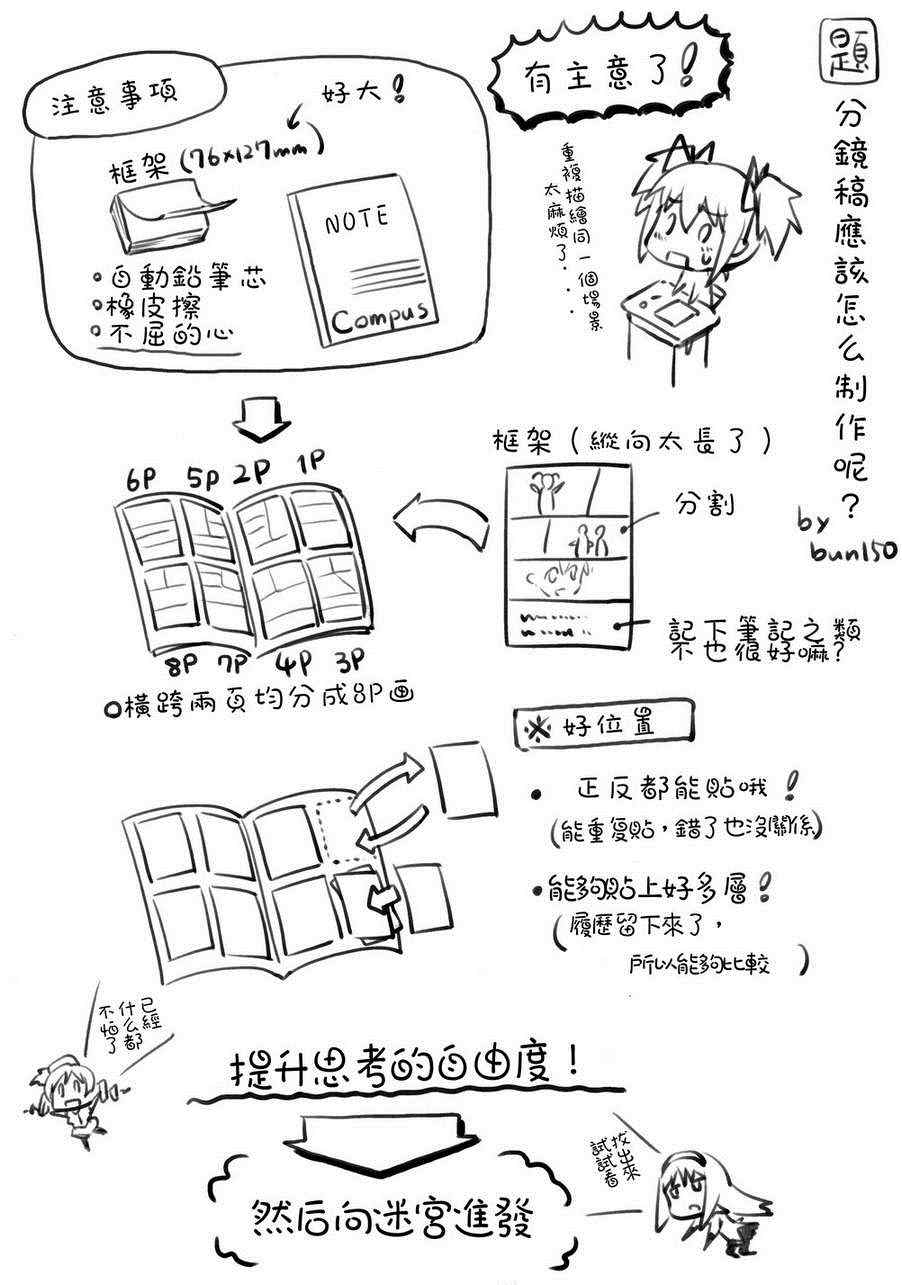 題
分鏡稿應該怎么制作呢?
by
bun150
有主意了!
重複描繪同一個場景
太麻煩了・・・
注意事項
好大!
框架(76×127mm)
NOTE
Compus
•自動鉛筆芯
•橡皮擦
•不屈的心
框架(縱向太長了)
分割
記下筆記之類
不也很好嘛?
6P 5P 2P 1P
8P 7P 4P 3P
○橫跨兩頁均分成8P画
※好位置
• 正反都能貼哦!
(能重复貼,錯了也沒關係)
•能夠貼上好多層!
(履歷留下來了,
所以能夠比較)
已經都
什么
不怕了
提升思考的自由度!
然后向迷宮進發
找出來
試試看